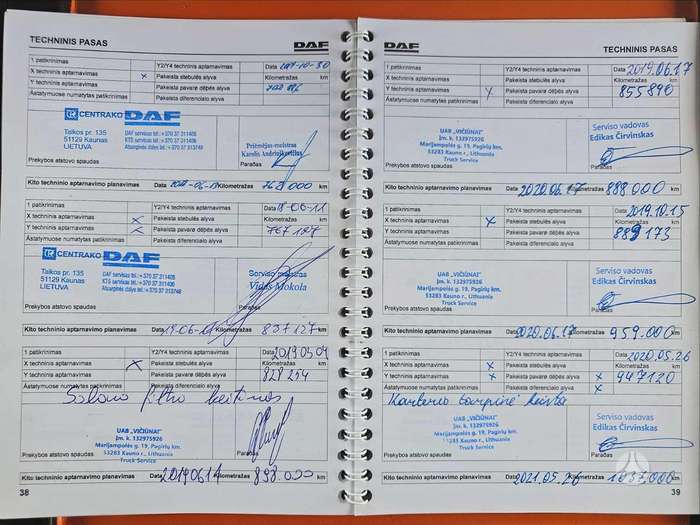 TECHNINIS PASAS
DAF
1 patikrinimas
Y2/Y4 techninis aptarnavimas
Data
X techninis aptarnavimas
x
Pakeista stebulės alyva
Kilometražas
km
Y techninis aptarnavimas
Pakeista pavarų dėžės alyva
Ištatymuose numatytas patikrinimas
Pakeista diferencialo alyva
CENTRAKO DAF
Taikos pr. 135
51129 Kaunas
LIETUVA
DAF servisas tel.:+370 37 311406
Priėmėjas-meistras
Karolis Andriuškevičius
Prekybos atstovo spaudas
Parašas
Kito techninio aptarnavimo planavimas
Data
Kilometražas
768000
km
1 patikrinimas
Y2/Y4 techninis aptarnavimas
Data
18-06-11
X techninis aptarnavimas
x
Pakeista stebulės alyva
Kilometražas
km
Y techninis aptarnavimas
x
Pakeista pavarų dėžės alyva
767127
Pakeista diferencialo alyva
CENTRAKO DAF
Taikos pr. 135
51129 Kaunas
LIETUVA
DAF servisas tel.:+370 37 311406
Serviso meistras
Vidas Mokola
Prekybos atstovo spaudas
Parašas
Kito techninio aptarnavimo planavimas
Data
Kilometražas
837127
km
1 patikrinimas
Y2/Y4 techninis aptarnavimas
Data
20190509
X techninis aptarnavimas
x
Pakeista stebulės alyva
Kilometražas
km
Y techninis aptarnavimas
Pakeista pavarų dėžės alyva
828254
Pakeista diferencialo alyva
Salono filtro keitimas
UAB „VIČIŪNAI“
Įm. k. 132975926
Marijampolės g. 19, Pagirių km.
53283 Kauno r., Lithuania
Truck Service
Prekybos atstovo spaudas
Parašas
Kito techninio aptarnavimo planavimas
Data
Kilometražas
898000
km
38
DAF
TECHNINIS PASAS
1 patikrinimas
Y2/Y4 techninis aptarnavimas
Data
2019.06.17
X techninis aptarnavimas
Pakeista stebulės alyva
Kilometražas
km
Y techninis aptarnavimas
x
Pakeista pavarų dėžės alyva
855890
Pakeista diferencialo alyva
UAB „VIČIŪNAI“
Įm. k. 132975926
Marijampolės g. 19, Pagirių km.
53283 Kauno r., Lithuania
Truck Service
Serviso vadovas
Edikas Čirvinskas
Prekybos atstovo spaudas
Parašas
Kito techninio aptarnavimo planavimas
Data
2020.06.17
888000
km
1 patikrinimas
Y2/Y4 techninis aptarnavimas
Data
2019.10.15
X techninis aptarnavimas
x
Pakeista stebulės alyva
Kilometražas
km
Y techninis aptarnavimas
Pakeista pavarų dėžės alyva
889173
Pakeista diferencialo alyva
UAB „VIČIŪNAI“
Įm. k. 132975926
Marijampolės g. 19, Pagirių km.
53283 Kauno r., Lithuania
Truck Service
Serviso vadovas
Edikas Čirvinskas
Prekybos atstovo spaudas
Parašas
Kito techninio aptarnavimo planavimas
Data
2020.06.17
Kilometražas
959.000
km
1 patikrinimas
Y2/Y4 techninis aptarnavimas
Data
2020.05.26
X techninis aptarnavimas
x
Pakeista stebulės alyva
Kilometražas
km
Y techninis aptarnavimas
x
Pakeista pavarų dėžės alyva
x
947120
Pakeista diferencialo alyva
x
UAB „VIČIŪNAI“
Įm. k. 132975926
Marijampolės g. 19, Pagirių km.
53283 Kauno r., Lithuania
Truck Service
Serviso vadovas
Edikas Čirvinskas
Prekybos atstovo spaudas
Parašas
Kito techninio aptarnavimo planavimas
Data
2021.05.26
Kilometražas
km
39